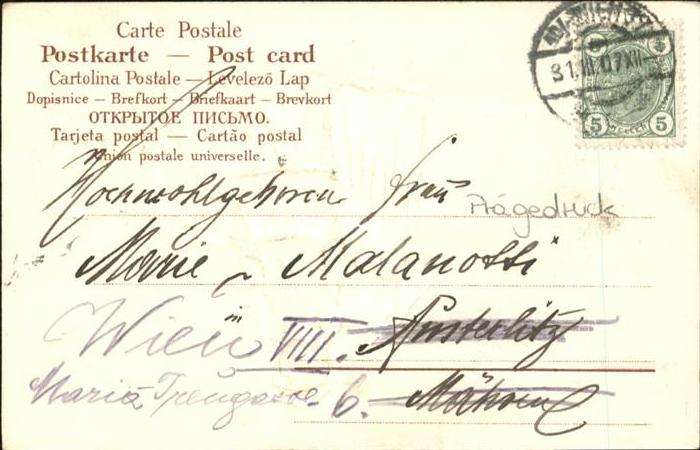 Carte Postale
Postkarte — Post card
Cartolina Postale — Levelező Lap
Dopisnice – Brefkort – Briefkaart – Brevkort
ОТКРЫТОЕ ПИСЬМО.
Tarjeta postal — Cartão postal
Union postale universelle.
31. III. 07 XII
5 5
Hochwohlgeboren Frau
Prägedruck
Marie Malanotti
in Austerlitz
Wien VIII.
Mähren
Maria Treugasse 6.